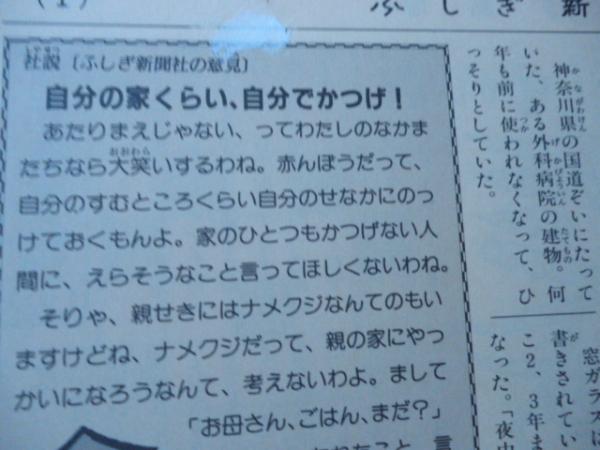 (1)
ふしぎ新
社説〔ふしぎ新聞社の意見〕
自分の家くらい、自分でかつげ!
あたりまえじゃない、ってわたしのなかま
たちなら大笑いするわね。赤んぼうだって、
自分のすむところくらい自分のせなかにのっ
けておくもんよ。家のひとつもかつげない人
間に、えらそうなこと言ってほしくないわね。
そりゃ、親せきにはナメクジなんてのもい
ますけどね、ナメクジだって、親の家にやっ
かいになろうなんて、考えないわよ。まして
「お母さん、ごはん、まだ?」
神奈川県の国道ぞいにたって
いた、ある外科病院の建物。何
年も前に使われなくなって、ひ
っそりとしていた。
窓ガラスに
書きされてい
こ2、3年ま
なった。「夜中